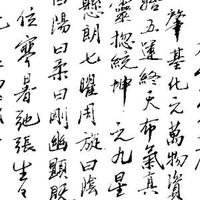 肇基化元萬物資
始五運終天布氣真
靈揔統坤元九星
懸朗七曜周旋曰陰
曰陽曰柔曰剛幽顯既
位寒暑弛張生々